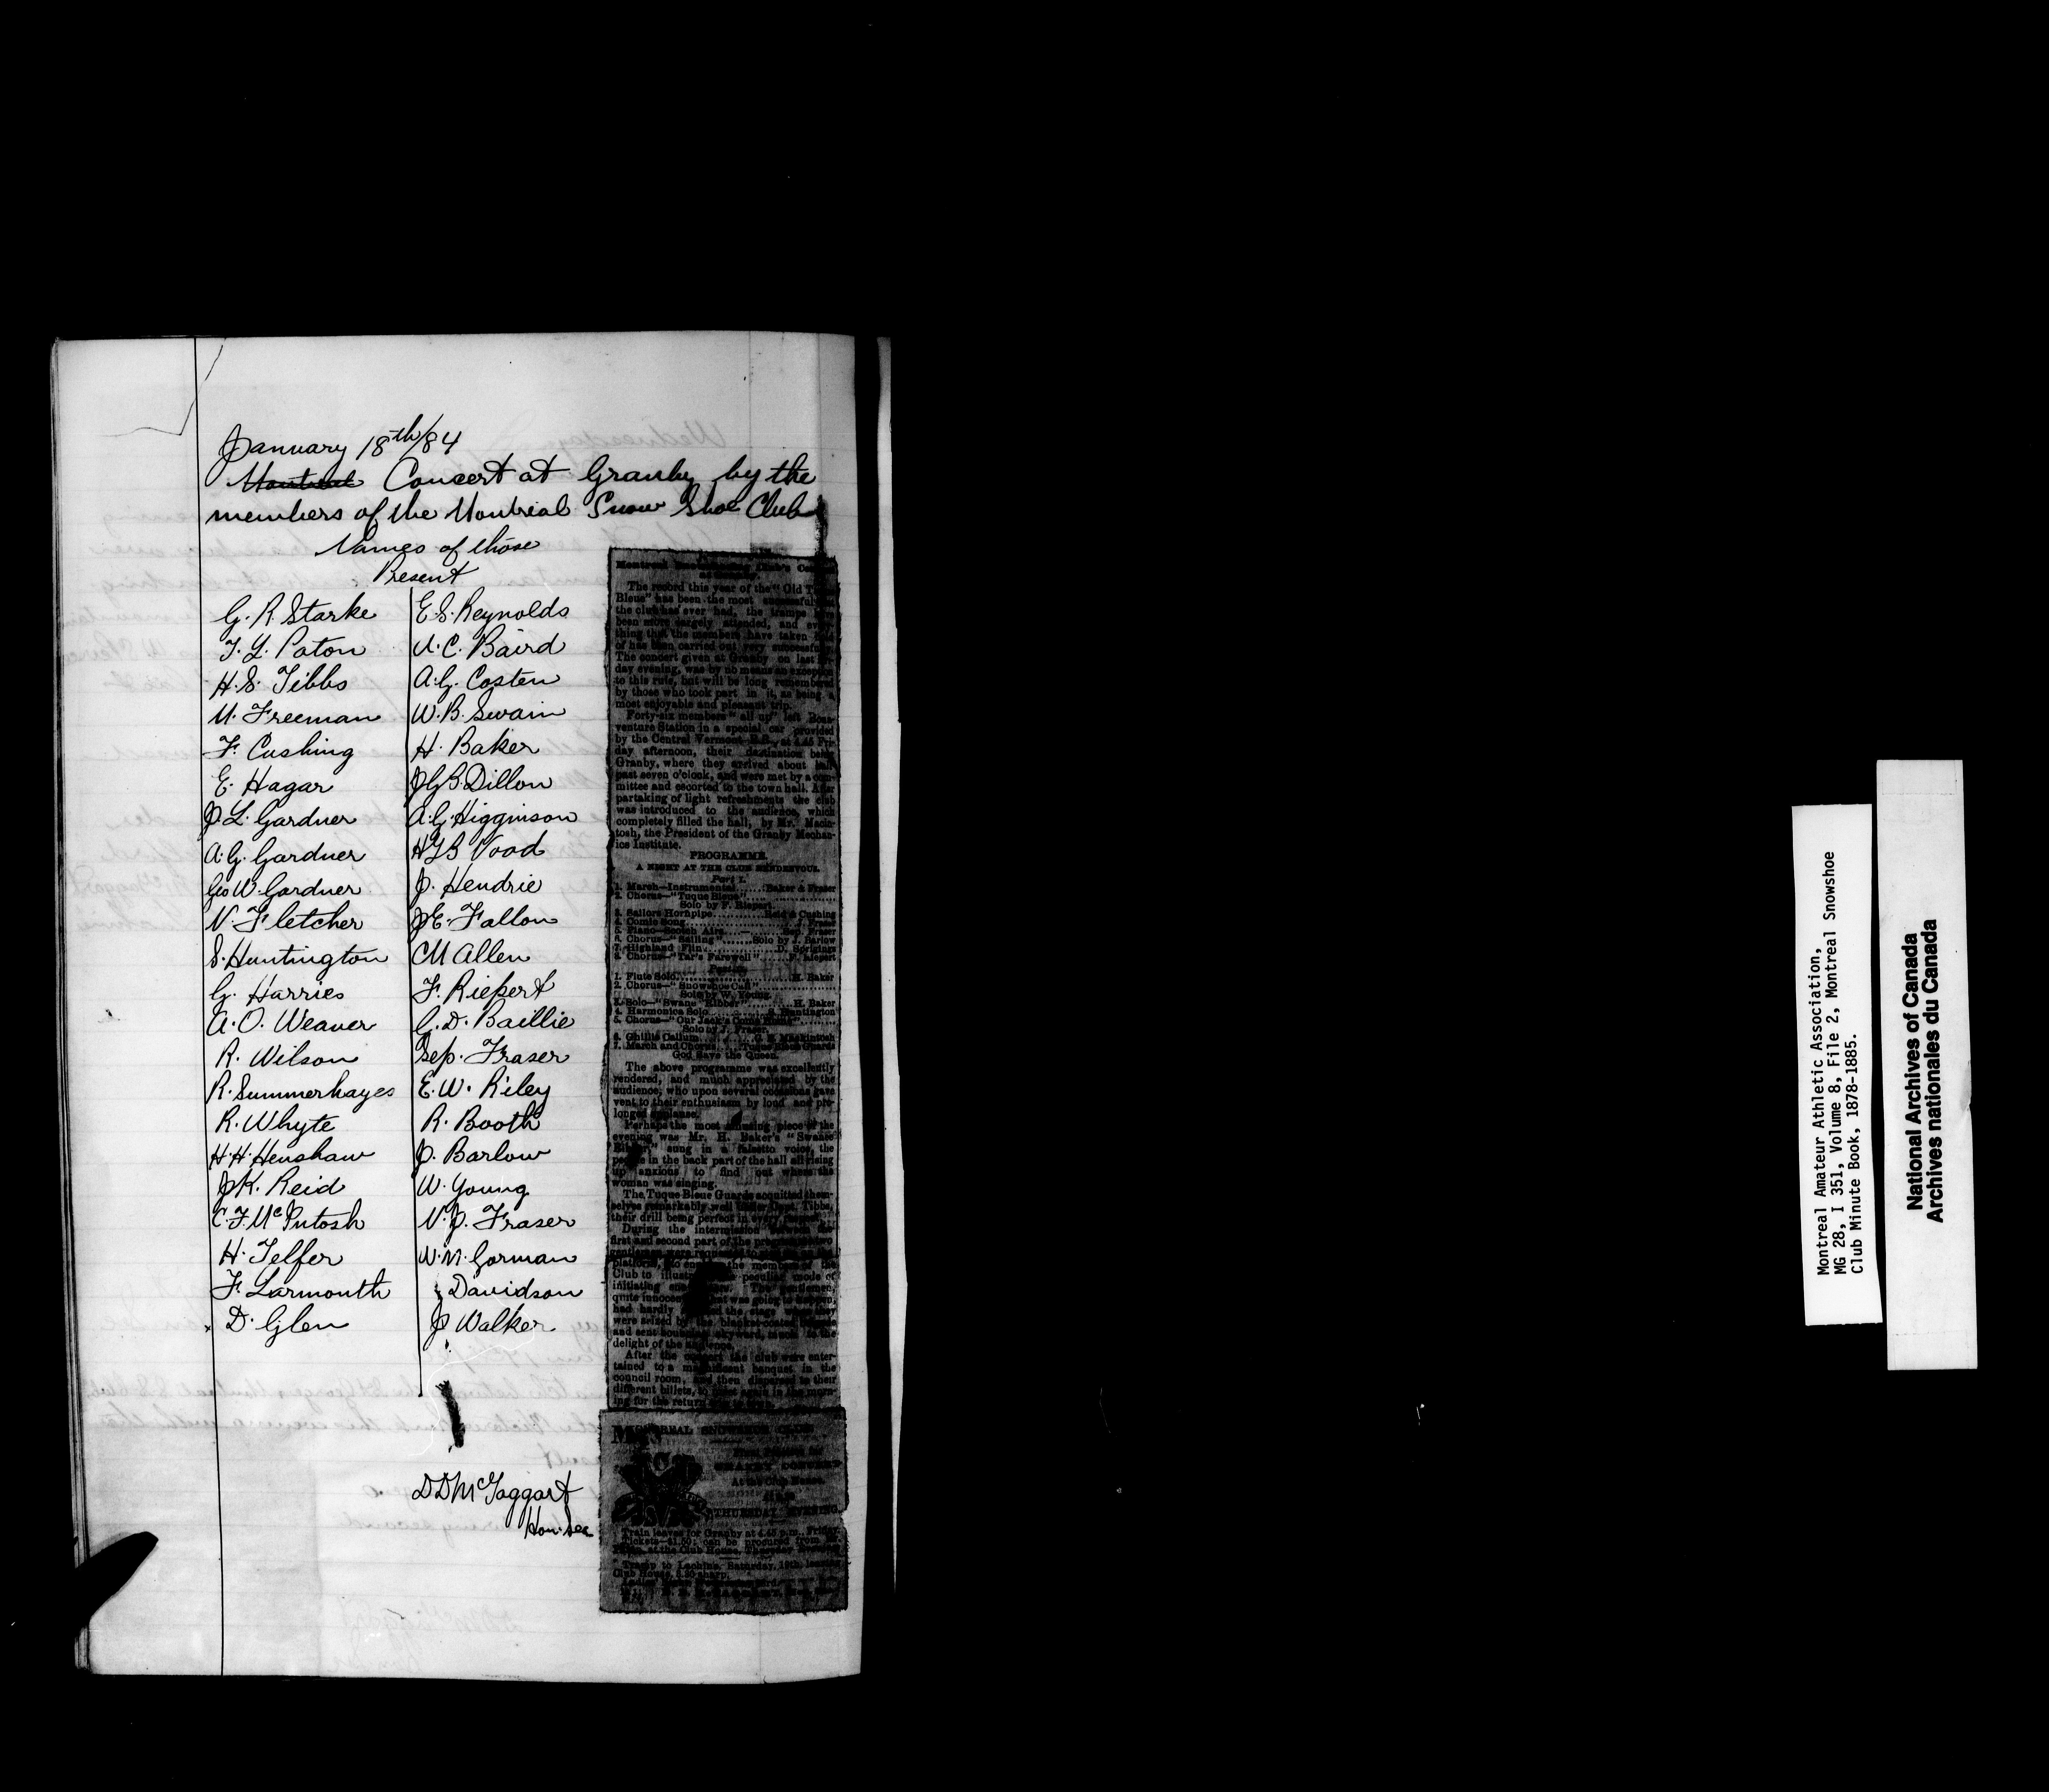 January 18th/84
Montreal Concert at Granby by the
members of the Montreal Snow Shoe Club
Names of those
Present
G. R. Starke
T. L. Paton
H. S. Tibbs
M. Freeman
F. Cushing
E. Hagar
J L. Gardner
A. G. Gardner
Geo W. Gardner
N. Fletcher
S. Huntington
G. Harries
A. O. Weaver
R. Wilson
R. Summerhayes
R. Whyte
H. H. Henshaw
J K. Reid
C. F. McIntosh
H. Telfer
F. Larmouth
x D. Glen
E. S. Reynolds
A. C. Baird
A. G. Costen
W. B. Swain
H. Baker
J G B. Dillon
A. G. Higginson
H G B Vood
J. Hendrie
J E. Fallon
C M Allen
F. Riepert
G. D. Baillie
Sep. Fraser
E. W. Riley
R. Booth
J. Barlow
W. Young
N. J. Fraser
W. M. Gorman
Davidson
J Walker
D D McTaggart
Hon. Sec
The record this year of the "Old
Bleue" has been the most successful
the club has ever had, the tramps
been more largely attended, and
thing that the members have taken
of has been carried out very successfully.
The concert given at Granby on last
day evening, was by no means an exception
to this rule, but will be long remembered
by those who took part in it, as being a
most enjoyable and pleasant trip.
Forty-six members "all up" left Bona-
venture Station in a special car provided
by the Central Vermont at 4.45 Fri-
day afternoon, their destination being
Granby, where they arrived about half
past seven o'clock, and were met by a com-
mittee and escorted to the town hall. After
partaking of light refreshments the club
was introduced to the audience, which
completely filled the hall, by Mr. Macin-
tosh, the President of the Granby Mechan-
ics Institute.
PROGRAMME.
A NIGHT AT THE CLUB RENDEZVOUS.
Part I.
1. March—Instrumental......Baker & Fraser
2. Chorus—"Tuque Bleue"
Solo by F. Riepert.
3. Sailors Hornpipe..........Reid & Cushing
4. Comic Song..........J. Fraser
5. Piano—Scotch Airs..........Sep. Fraser
6. Chorus—"Sailing"......Solo by J. Barlow
7. Highland Flin..........D. Spriggings
8. Chorus—"Tar's Farewell"......F. Riepert
1. Flute Solo..........H. Baker
2. Chorus—"Snowshoe Call"
Solo by W. Young.
3. Solo—"Swanee Ribber"..........H. Baker
4. Harmonica Solo..........S. Huntington
5. Chorus—"Our Jack's Come Home"........
Solo by J. Fraser.
6. Ghillie Callum..........Mackintosh
7. March and Chorus......Tuque Bleue Guards
God Save the Queen.
The above programme was excellently
rendered, and much appreciated by the
audience, who upon several occasions gave
vent to their enthusiasm by loud and pro-
longed applause.
Perhaps the most amusing piece of the
evening was Mr. H. Baker's "Swanee
sung in a falsetto voice, the
people in the back part of the hall all rising
up anxious to find out where the
woman was singing.
The Tuque Bleue Guards acquitted them-
selves remarkably well under Capt. Tibbs,
their drill being perfect in
During the intermission
first and second part of the programme
platform, to the members of the
Club to illustrate peculiar mode of
initiating
quite innocent was going to happen,
had hardly the stage
were seized by the
and sent skyward, much to the
delight of the audience.
After the concert the club were enter-
tained to a magnificent banquet in the
council room, and then dispersed to their
different billets, to meet again in the morn-
ing for the return
MONTREAL SNOWSHOE CLUB
At the Club House,
THURSDAY EVENING
Train leaves for Granby at 4.45 p.m., Friday.
Tickets—$1.50; can be procured from
at the Club House, Thursday
Tramp to Lachine, Saturday, 19th, leaving
Club House, sharp.
Montreal Amateur Athletic Association,
MG 28, I 351, Volume 8, File 2, Montreal Snowshoe
Club Minute Book, 1878-1885.
National Archives of Canada
Archives nationales du Canada